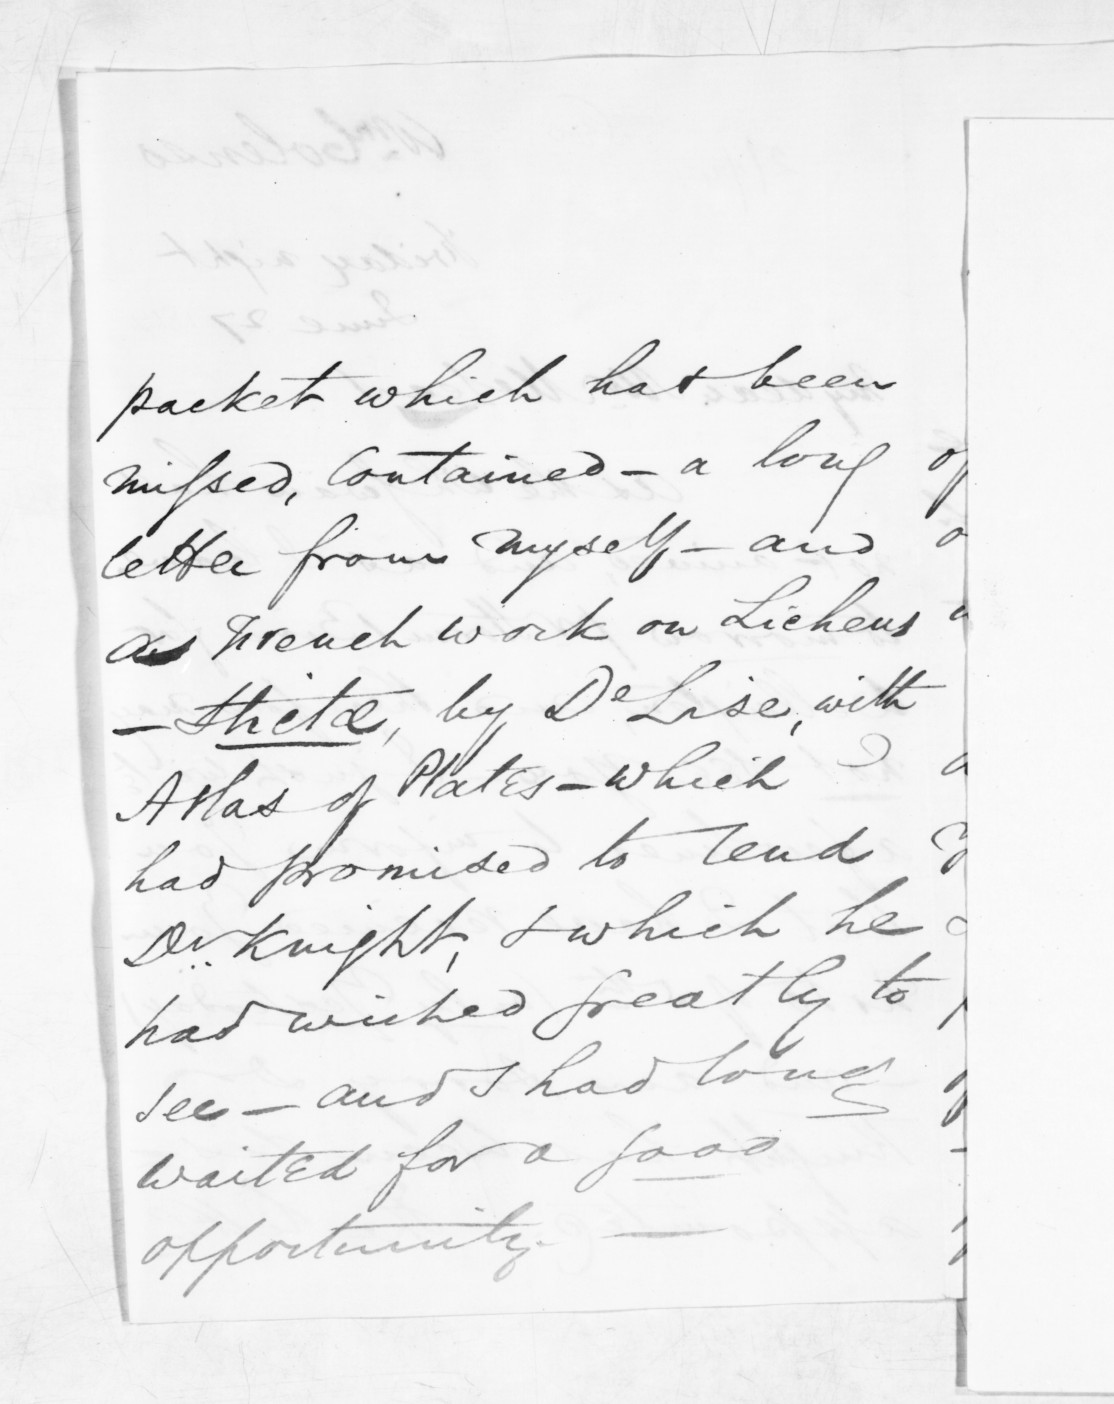 packet which has been
missed, contained – a long
letter from myself – and
a French work on Lichens
– Sticta, by De Lise, with
Atlas of Plates – which
had promised to lend
Dr. Knight, & which he
had wished greatly to
see – and I had long
waited for a good
opportunity. —